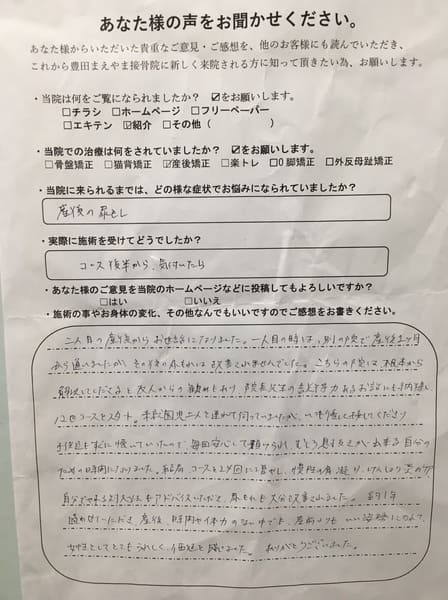 あなた様の声をお聞かせください。
あなた様からいただいた貴重なご意見・ご感想を、他のお客様にも読んでいただき、
これから豊田まえやま接骨院に新しく来院される方に知って頂きたい為、お願いします。
・当院は何をご覧になられましたか? ☑をお願いします。
□チラシ □ホームページ □フリーペーパー
□エキテン ☑紹介 □その他( )
・当院での治療は何をされていましたか? ☑をお願いします。
□骨盤矯正 □猫背矯正 ☑産後矯正 □楽トレ □O脚矯正 □外反母趾矯正
・当院に来られるまでは、どの様な症状でお悩みになられていましたか?
産後の尿もれ
・実際に施術を受けてどうでしたか?
コース後半から、気付いたら
・あなた様のご意見を当院のホームページなどに投稿してもよろしいですか?
□はい □いいえ
・施術の事やお身体の変化、その他なんでもいいですのでご感想をお書きください。
二人目の産後からお世話になりました。一人目の時は、別の院で産後2ヶ月
から通いましたが、その後の尿もれは改善されませんでした。こちらの院は根本から
解決してくださると友人からの勧めもあり、院長先生の説得力あるお話にも納得し、
12回コースをスタート。未就園児二人を連れて伺っていましたが、いつも優しく接してくださり
子供達もすぐに懐いていたので、毎回安心して預けられ、むしろ息ぬきが出来る自分の
ための時間になりました。結局、コースを24回に増やし、慢性の肩凝り、けんしょう炎のケア、
自分でやれる対処法もアドバイスいただき、尿もれも大分改善されました。約1年
通わせていただき、産後、時間や体力のない中でも、産前よりも いい姿勢になれて、
女性としてとてもうれしく、価値を感じました。ありがとうございました。